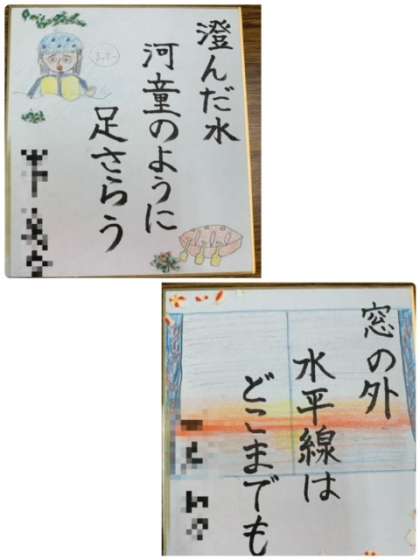 澄んだ水
河童のように
足さらう
窓の外
水平線は
どこまでも